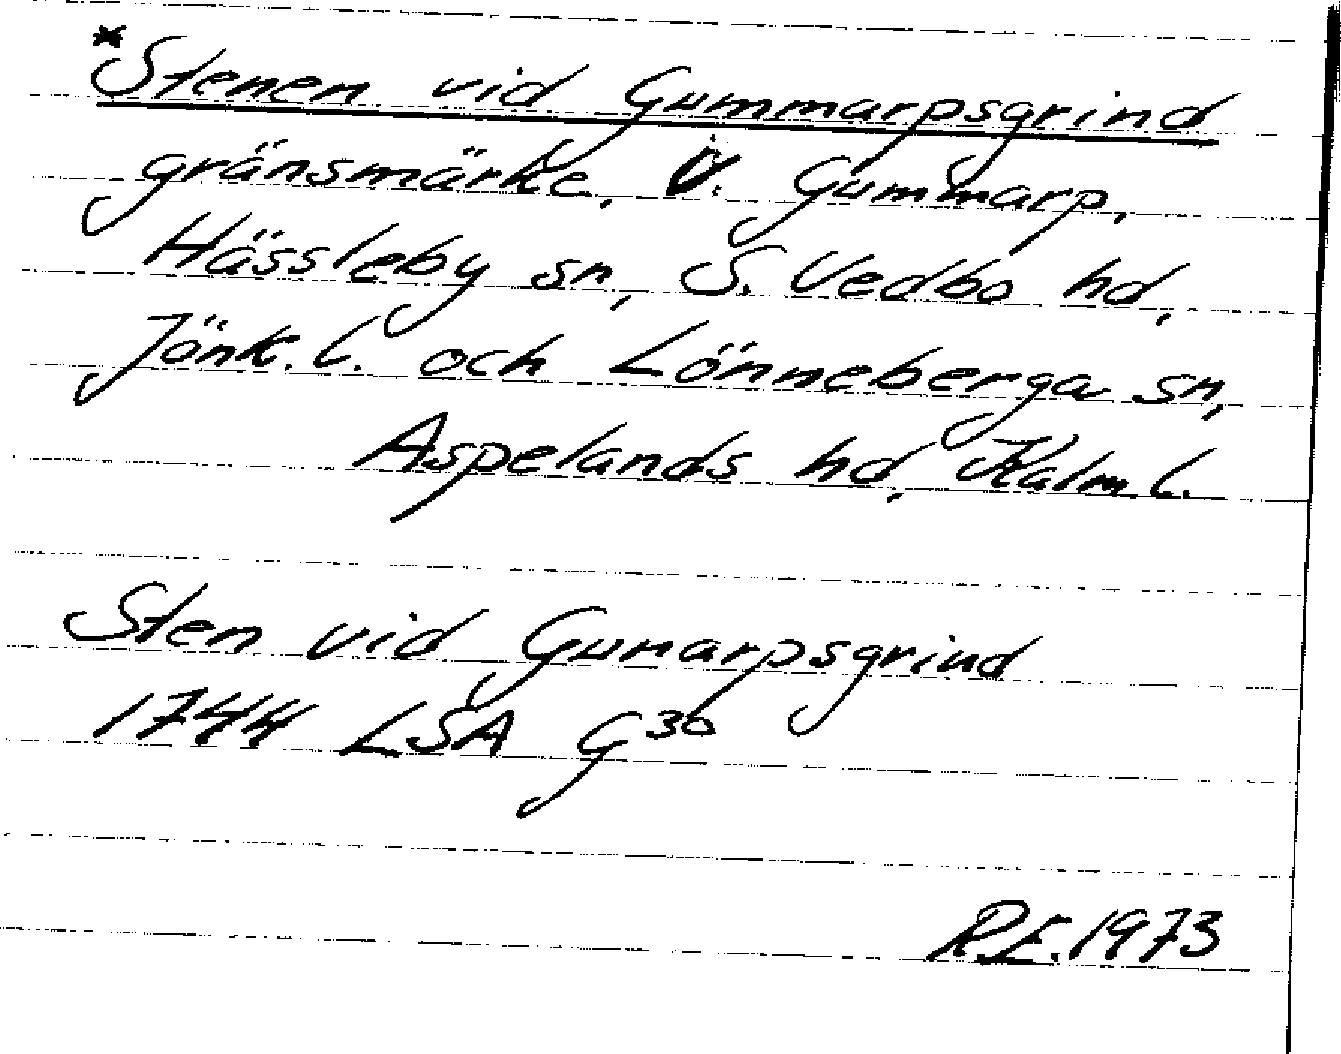 *Stenen vid Gummarpsgrind
gränsmärke, V. Gummarp,
Hässleby sn, S. Vedbo hd,
Jönk. l. och Lönneberga sn,
Aspelands hd, Kalm. l.
Sten vid Gumarpsgrind
1744 LSA G36
R.E. 1973